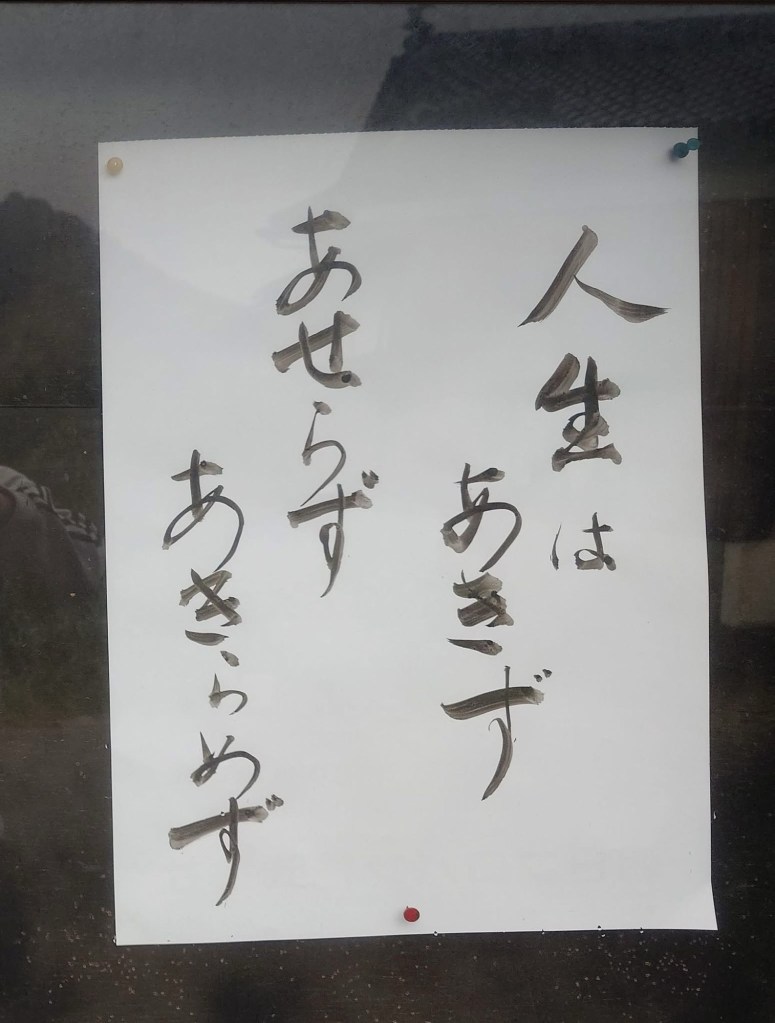 人生は
あきず
あせらず
あきらめず